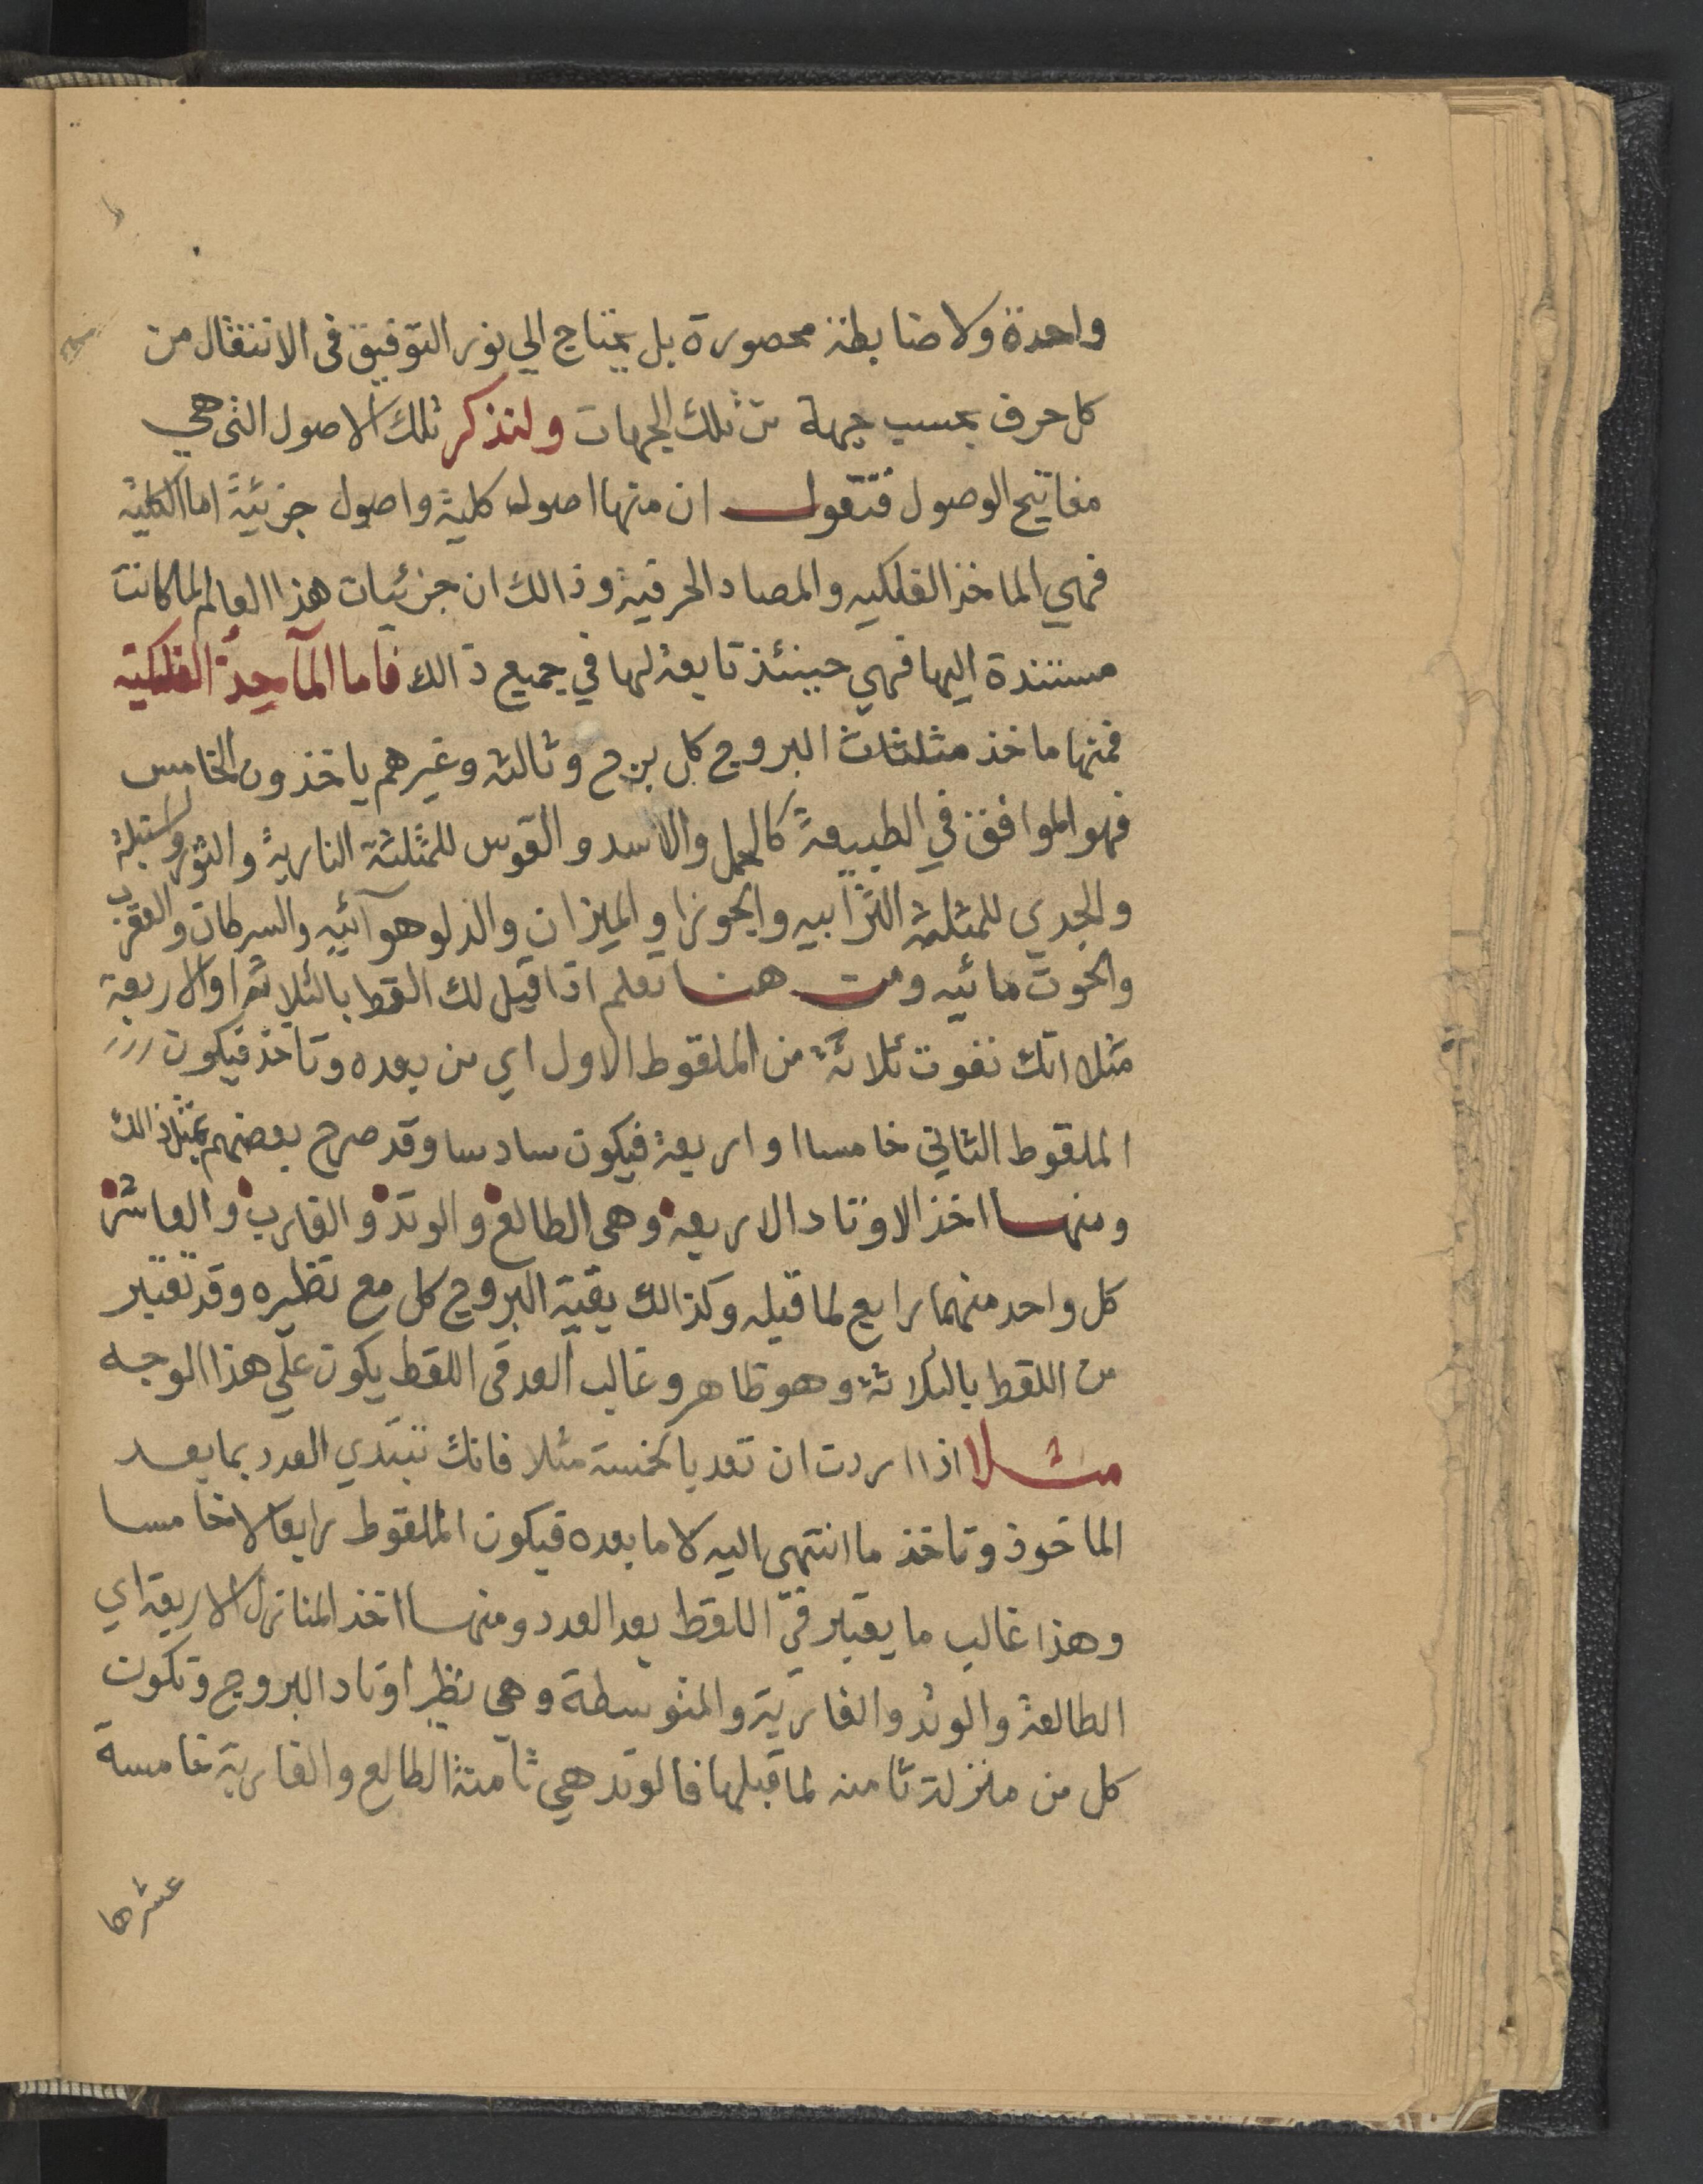 واحدة ولا ضابطة محصورة بل يحتاج الي نور التوفيق فى الانتقال من
كل حرف بحسب جهة من تلك الجهات ولنذكر تلك الاصول التى هي
مفاتيح الوصول فنقول ان منها اصول كلية واصول جزئية اما الكلية
فهي الماخذ الفلكيه والمصاد الحرفية وذالك ان جزئيات هذا العالم لما كانت
مستندة اليها فهي حينئذ تابعة لها في جميع ذالك فاما المآخذ الفلكية
فمنها ماخذ مثلثات البروج كل برج وثالثه وغيرهم ياخذون الخامس
فهو الموافق في الطبيعة كالحمل والاسد والقوس للمثلثة النارية والثور وسنبلة
والجدي للمثلثة الترابيه والجوزا والميزان والدلو هوآئيه والسرطان والعقرب
والحوت مائيه ومن هنا تعلم اذا قيل لك القط بالثلاثة او الاربعة
مثلا انك تفوت ثلاثة من الملقوط الاول اي من بعده وتاخذ فيكون
الملقوط الثاني خامسا او اربعة فيكون سادسا وقد صرح بعضهم بمثل ذالك
ومنها اخذ الاوتاد الاربعة وهى الطالع والوتد والغارب والعاشر
كل واحد منهما رابع لما قبله وكذالك بقية البروج كل مع نظيره وقد تعتبر
من اللقط بالثلاثة وهو ظاهر وغالب العد فى اللقط يكون علي هذا الوجه
مثلا اذا اردت ان تعد بالخمسة مثلا فانك تبتدي العدد بما بعد
الماخوذ وتاخذ ما انتهى اليه لا ما بعده فيكون الملقوط رابعا لا خامسا
وهذا غالب ما يعتبر في اللقط بعد العدد ومنها اخذ المنازل الاربعة اي
الطالعة والوتد والغاربة والمتوسطة وهي نظير اوتاد البروج وتكون
كل من منزلة ثامنه لما قبلها فالوتد هي ثامنة الطالع والغاربة خامسة
عشرها